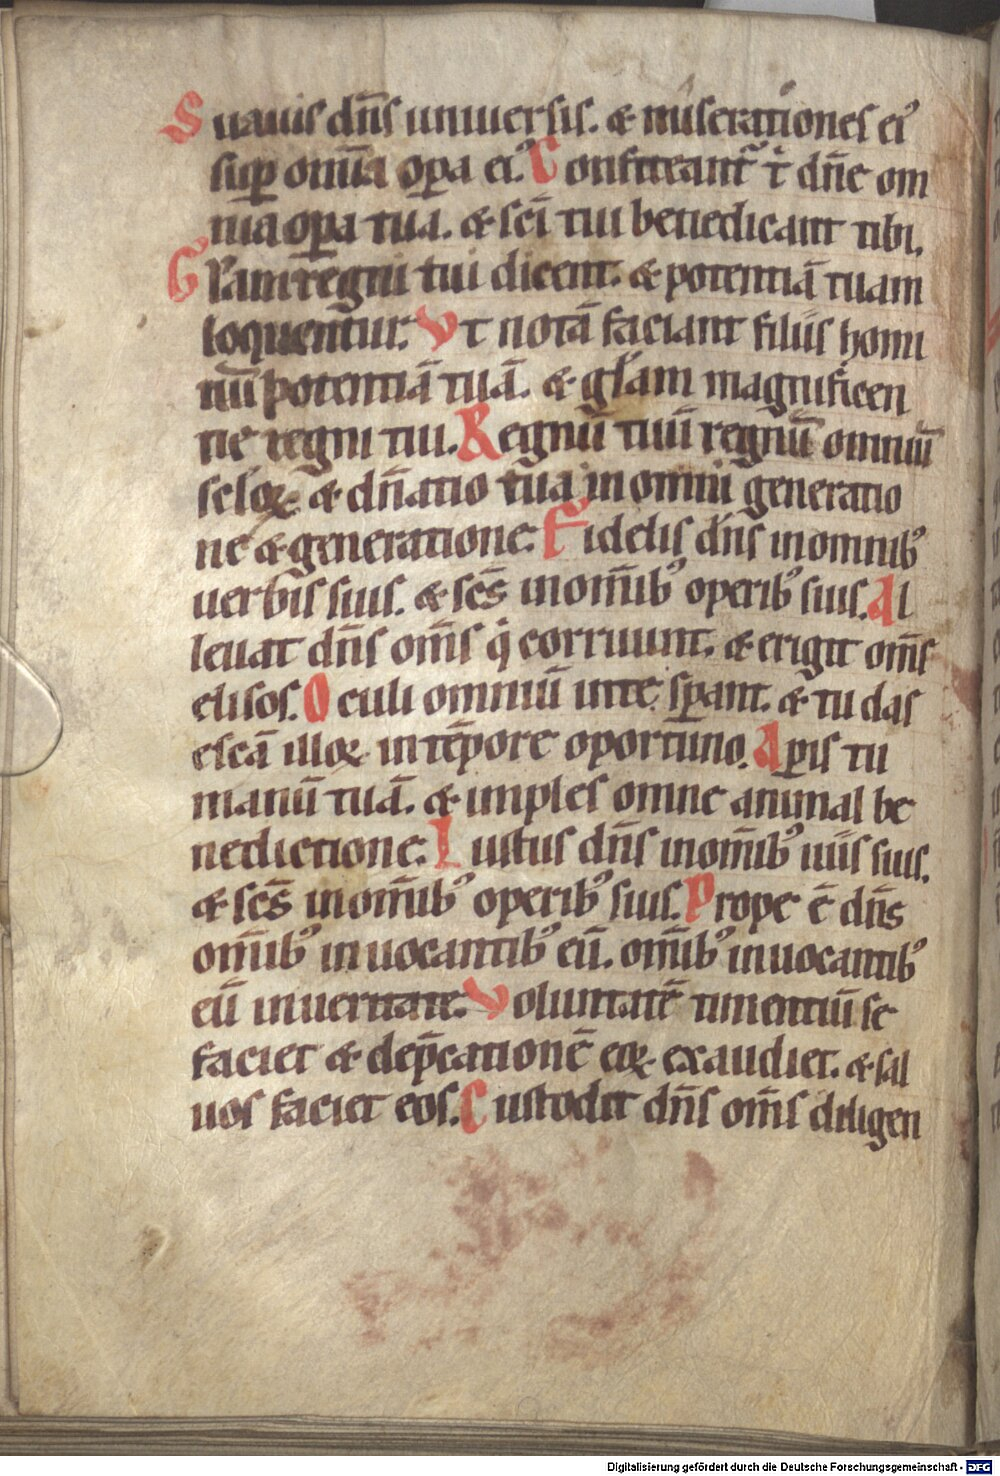 Suauis dn̄s uniuersis. & miserationes ei᾽
sup̲ om̄ia op̲a ei᾽. Confiteant᷑ t̄ dn̄e om
nia op̲a tua. & sc̄i tui benedicant tibi.
Gl̄am regni tui dicent. & potentiā tuam
loquentur. Vt notā faciant filiis homi
nū potentiā tuā. & gl̄am magnificen
tie regni tui. Regnū tuū regnū omniū
sc̄loꝝ & dn̄atio tua in omni generatio
ne & generatione. Fidelis dn̄s in omnib᾽
uerbis suis. & sc̄s in om̄ib᾽ operib᾽ suis. Al
leuat dn̄s om̄s q̇ corruunt. & erigit om̄s
elisos. Oculi omniū in te sp̲ant. & tu das
escā illoꝝ in tēpore oportuno. Ap̲is tu
manū tuā. & imples omne animal be
nedictione. Iustus dn̄s in om̄ib᾽ uiis suis.
& sc̄s in om̄ib᾽ operib᾽ suis. Prope ē dn̄s
om̄ib᾽ inuocantib᾽ eū. om̄ib᾽ inuocantib᾽
eū in ueritate. Voluntatē timentiū se
faciet & dep̄cationē eoꝝ exaudiet. & sal
uos faciet eos. Custodit dn̄s om̄s diligen
Digitalisierung gefördert durch die Deutsche Forschungsgemeinschaft - DFG